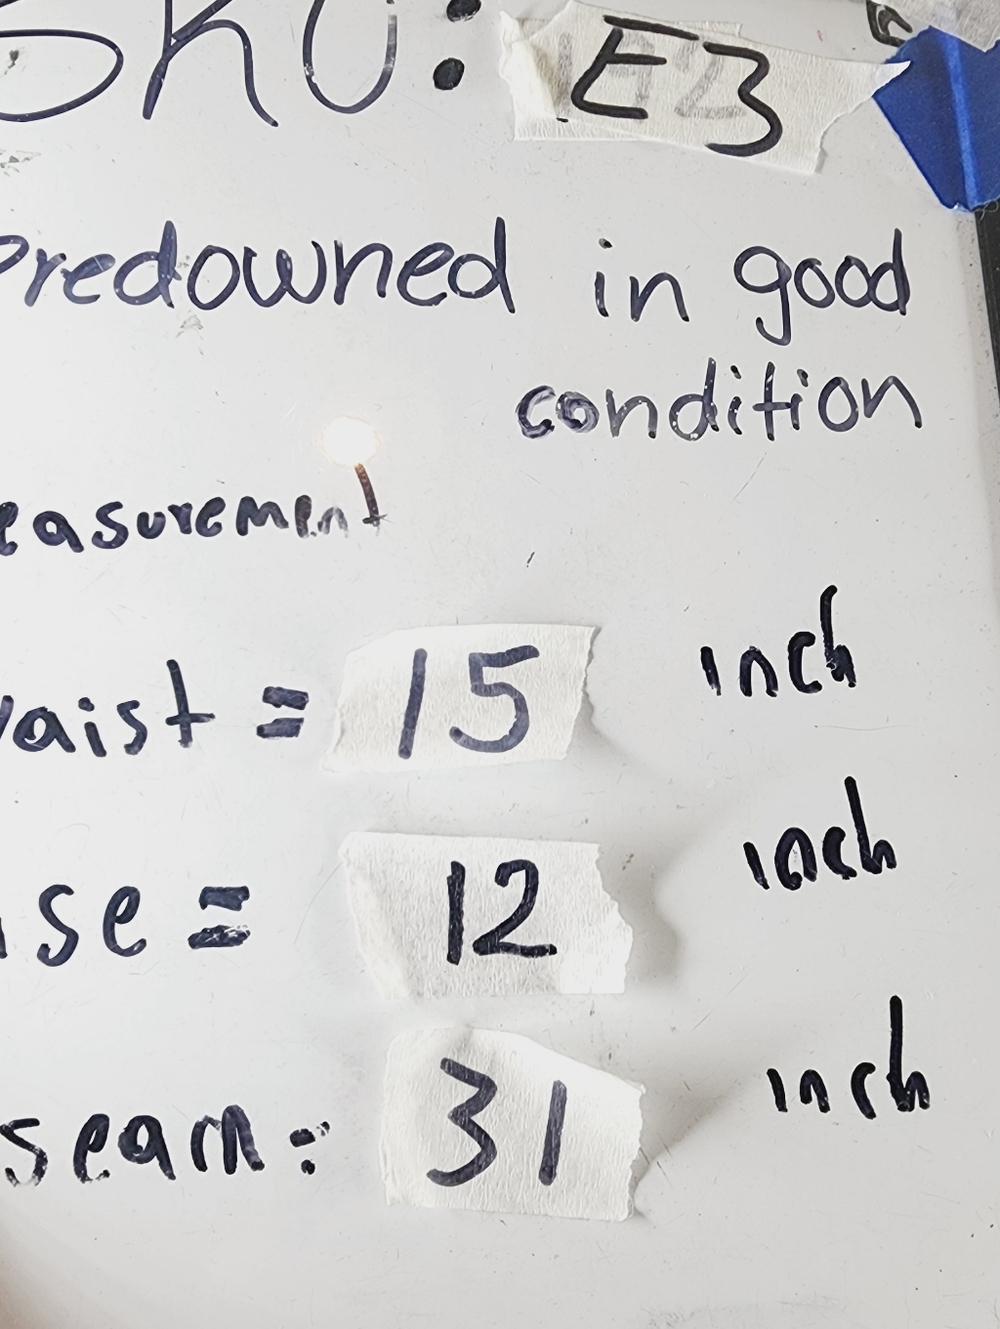 SKU: E3
Predowned in good
condition
easurement
aist = 15 inch
ise = 12 inch
seam: 31 inch